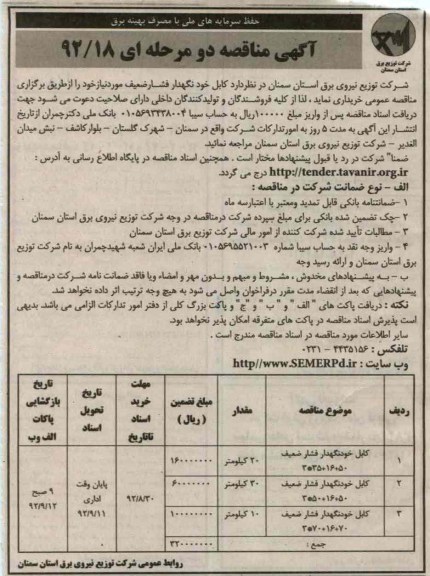 حفظ سرمایه های ملی با مصرف بهینه برق
آگهی مناقصه دو مرحله ای ۹۲/۱۸
شرکت توزیع برق
استان سمنان
شرکت توزیع نیروی برق استان سمنان در نظردارد کابل خود نگهدار فشارضعیف موردنیازخود را ازطریق برگزاری
مناقصه عمومی خریداری نماید ، لذا از کلیه فروشندگان و تولیدکنندگان داخلی دارای صلاحیت دعوت می شود جهت
دریافت اسناد مناقصه پس از واریز مبلغ ۱۰۰۰۰۰ریال به حساب سیبا ۰۱۰۵۶۹۳۳۳۸۰۰۴ بانک ملی دکترچمران ازتاریخ
انتشار این آگهی به مدت ۵ روز به امورتدارکات شرکت واقع در سمنان – شهرک گلستان – بلوارکاشف – نبش میدان
الغدیر – شرکت توزیع نیروی برق استان سمنان مراجعه نمائید.
ضمنا" شرکت در رد یا قبول پیشنهادها مختار است . همچنین اسناد مناقصه در پایگاه اطلاع رسانی به آدرس :
http://tender.tavanir.org.ir درج می گردد.
الف – نوع ضمانت شرکت در مناقصه :
۱ –ضمانتنامه بانکی قابل تمدید ومعتبر با اعتبارسه ماه
۲ –چک تضمین شده بانکی برای مبلغ سپرده شرکت درمناقصه در وجه شرکت توزیع نیروی برق استان سمنان
۳ – مطالبات تأیید شده شرکت کننده از امور مالی شرکت توزیع نیروی برق استان سمنان
۴ – واریز وجه نقد به حساب سیبا شماره ۰۱۰۵۶۹۵۵۲۱۰۰۳ بانک ملی ایران شعبه شهیدچمران به نام شرکت توزیع
برق استان سمنان و ارائه رسید وجه
ب – به پیشنهادهای مخدوش ، مشروط و مبهم و بدون مهر و امضاء ویا فاقد ضمانت نامه شرکت درمناقصه و
پیشنهادهایی که بعد از انقضاء مدت مقرر درفراخوان واصل می شود به هیچ وجه ترتیب اثر داده نخواهد شد.
نکته : دریافت پاکت های " الف " و " ب " و "ج" و پاکت بزرگ کلی از دفتر امور تدارکات الزامی می باشد. بدیهی
است پذیرش اسناد مناقصه در پاکت های متفرقه امکان پذیر نخواهد بود.
سایر اطلاعات مورد مناقصه در اسناد مناقصه مندرج است .
تلفکس : ۴۴۳۵۱۵۶ – ۰۲۳۱
وب سایت : http//www.SEMERPd.ir
ردیف موضوع مناقصه مقدار مبلغ تضمین ( ریال ) مهلت خرید اسناد تاتاریخ تاریخ تحویل اسناد تاریخ بازگشایی پاکات الف وب
۱ کابل خودنگهدار فشار ضعیف ۳*۳۵+۱۶+۵۰ ۲۰ کیلومتر ۱۶۰۰۰۰۰۰۰
۲ کابل خودنگهدار فشار ضعیف ۳*۵۰+۱۶+۵۰ ۳۰ کیلومتر ۶۰۰۰۰۰۰۰
۳ کابل خودنگهدار فشار ضعیف ۳*۷۰+۱۶+۷۰ ۱۰ کیلومتر ۱۰۰۰۰۰۰۰۰
۹۲/۸/۳۰ پایان وقت اداری ۹۲/۹/۱۱ ۹ صبح ۹۲/۹/۱۲
جمع : ۳۲۰۰۰۰۰۰۰
روابط عمومی شرکت توزیع نیروی برق استان سمنان